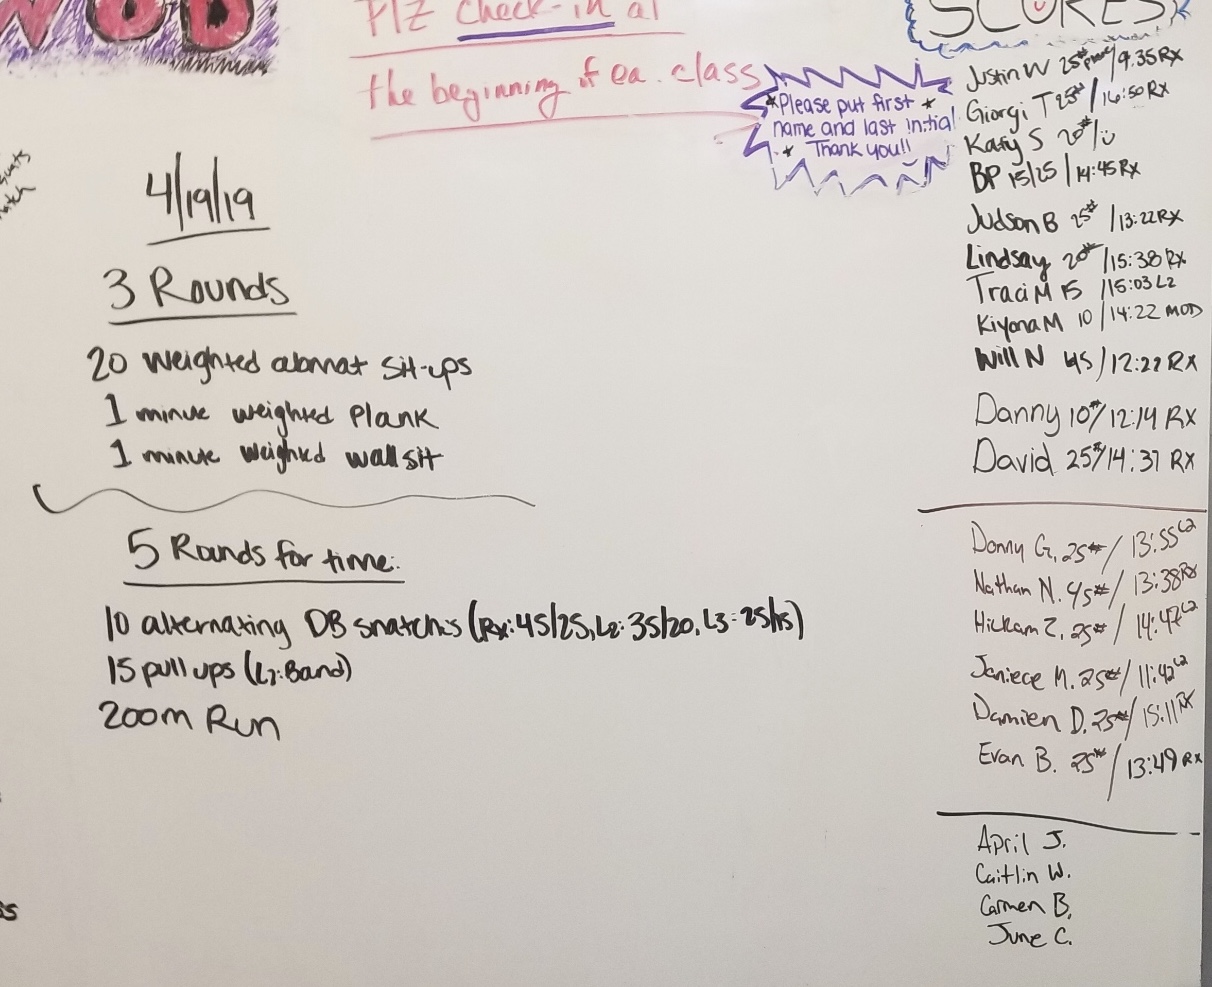 WOD
Plz check-in at
the beginning of ea. class
SCORES
*Please put first *
name and last initial
* Thank you!!
4/19/19
3 Rounds
20 weighted abmat sit-ups
1 minute weighted Plank
1 minute weighted wall sit
5 Rounds for time:
10 alternating DB snatches (Rx: 45/25, L2: 35/20, L3: 25/15)
15 pull ups (L2: Band)
200m Run
Justin W 25# / 9:35 Rx
Giorgi T 25# / 16:50 Rx
Katy S 20# /
BP 15/25 / 14:45 Rx
Judson B 25# / 13:22 Rx
Lindsay 20# / 15:38 Rx
Traci M 15 / 15:03 L2
Kiyona M 10 / 14:22 MOD
Will N 45 / 12:22 Rx
Danny 10# / 12:14 Rx
David 25# / 14:37 Rx
Donny G. 25# / 13:55 L2
Nathan N. 45# / 13:38 Rx
Hickam Z. 25# / 14:47 L2
Janiece M. 25# / 11:42 L2
Damien D. 25# / 15:11 Rx
Evan B. 25# / 13:49 Rx
April J.
Caitlin W.
Carmen B.
June C.